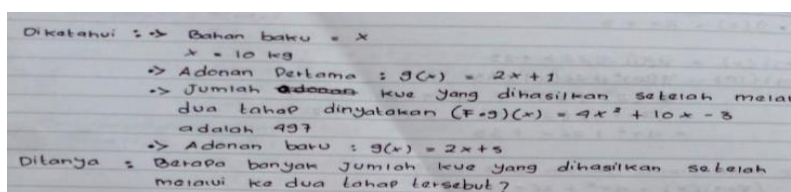 Diketahui : -> Bahan baku = x
x = 10 kg
-> Adonan Pertama : g(x) = 2x + 1
-> Jumlah kue yang dihasilkan setelah melalui
dua tahap dinyatakan (F∘g)(x) = 4x² + 10x - 3
adalah 497
-> Adonan baru : g(x) = 2x + 5
Ditanya : Berapa banyak jumlah kue yang dihasilkan setelah
melalui ke dua tahap tersebut ?